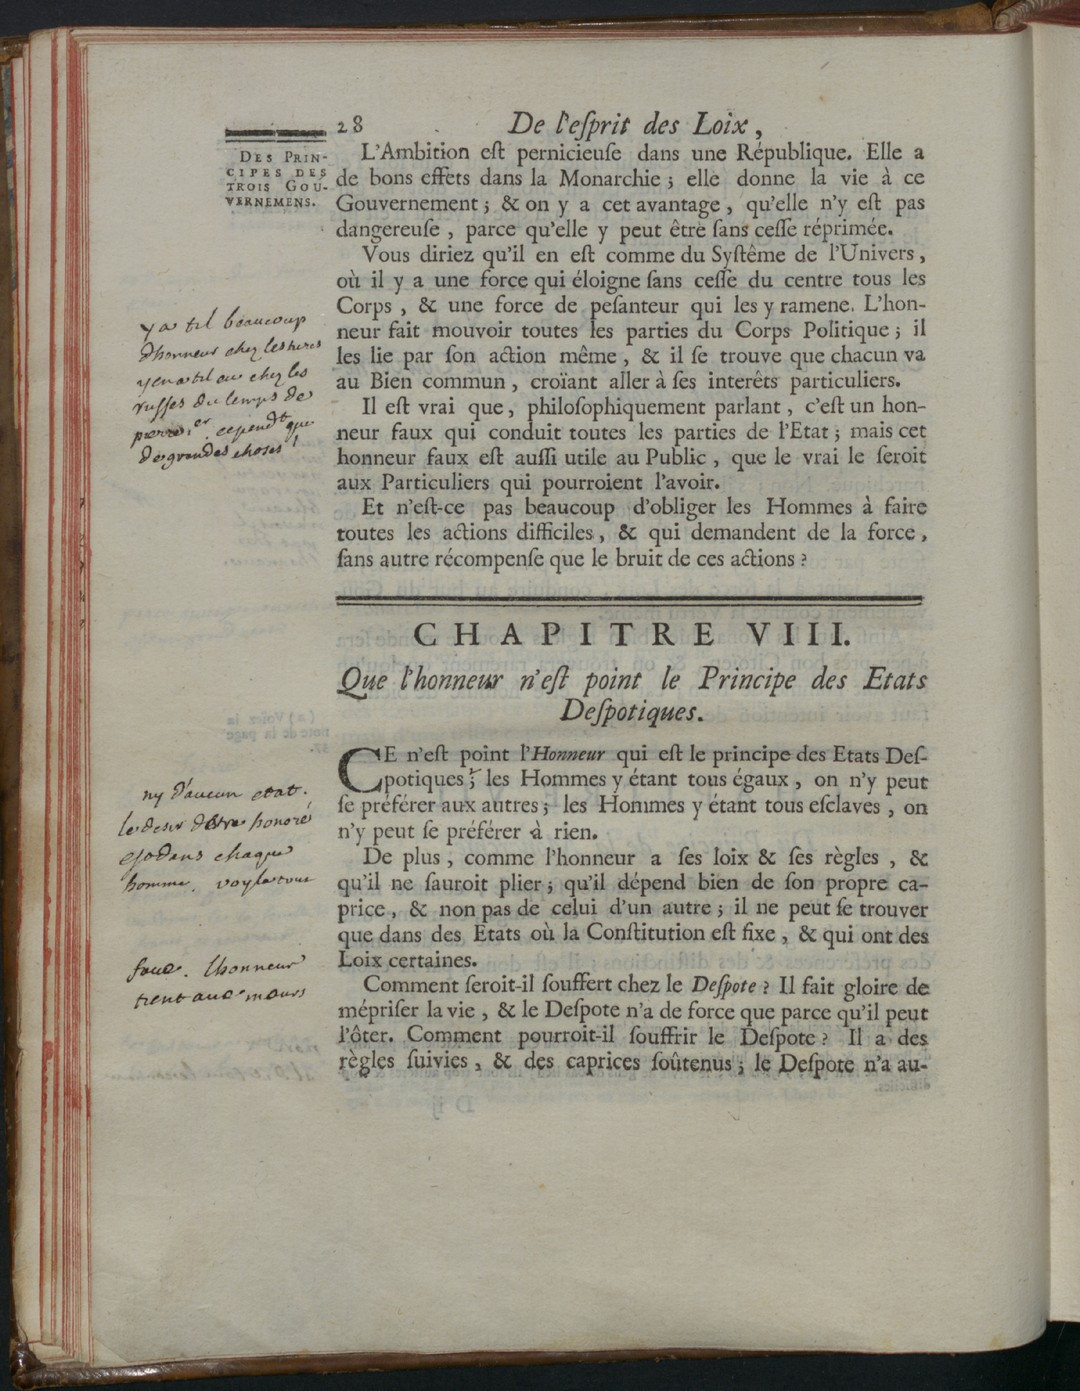 28 De l'eſprit des Loix,
DES PRIN-
CIPES DES
TROIS GOU-
VERNEMENS.
L'Ambition eſt pernicieuſe dans une République. Elle a
de bons effets dans la Monarchie; elle donne la vie à ce
Gouvernement; & on y a cet avantage, qu'elle n'y eſt pas
dangereuſe, parce qu'elle y peut être ſans ceſſe réprimée.
Vous diriez qu'il en eſt comme du Syſtême de l'Univers,
où il y a une force qui éloigne ſans ceſſe du centre tous les
Corps, & une force de peſanteur qui les y ramene. L'hon-
neur fait mouvoir toutes les parties du Corps Politique; il
les lie par ſon action même, & il ſe trouve que chacun va
au Bien commun, croïant aller à ſes interêts particuliers.
y a til beaucoup
dhonneur chez les turcs
y en a til eu chez les
ruſſes du temps de
pierre 1er. cependt que
de grandes choses!
Il eſt vrai que, philoſophiquement parlant, c'eſt un hon-
neur faux qui conduit toutes les parties de l'Etat; mais cet
honneur faux eſt auſſi utile au Public, que le vrai le ſeroit
aux Particuliers qui pourroient l'avoir.
Et n'eſt-ce pas beaucoup d'obliger les Hommes à faire
toutes les actions difficiles, & qui demandent de la force,
ſans autre récompenſe que le bruit de ces actions?
CHAPITRE VIII.
Que l'honneur n'eſt point le Principe des Etats
Deſpotiques.
CE n'eſt point l'Honneur qui eſt le principe des Etats Deſ-
potiques; les Hommes y étant tous égaux, on n'y peut
ſe préférer aux autres; les Hommes y étant tous eſclaves, on
n'y peut ſe préférer à rien.
ny d'aucun etat.
le desir d'etre honoré
est dans chaque
homme. voyla tout
De plus, comme l'honneur a ſes loix & ſes règles, &
qu'il ne ſauroit plier; qu'il dépend bien de ſon propre ca-
price, & non pas de celui d'un autre; il ne peut ſe trouver
que dans des Etats où la Conſtitution eſt fixe, & qui ont des
Loix certaines.
faux. lhonneur
tient aux mœurs
Comment ſeroit-il ſouffert chez le Deſpote? Il fait gloire de
mépriſer la vie, & le Deſpote n'a de force que parce qu'il peut
l'ôter. Comment pourroit-il ſouffrir le Deſpote? Il a des
règles ſuivies, & des caprices ſoûtenus; le Deſpote n'a au-